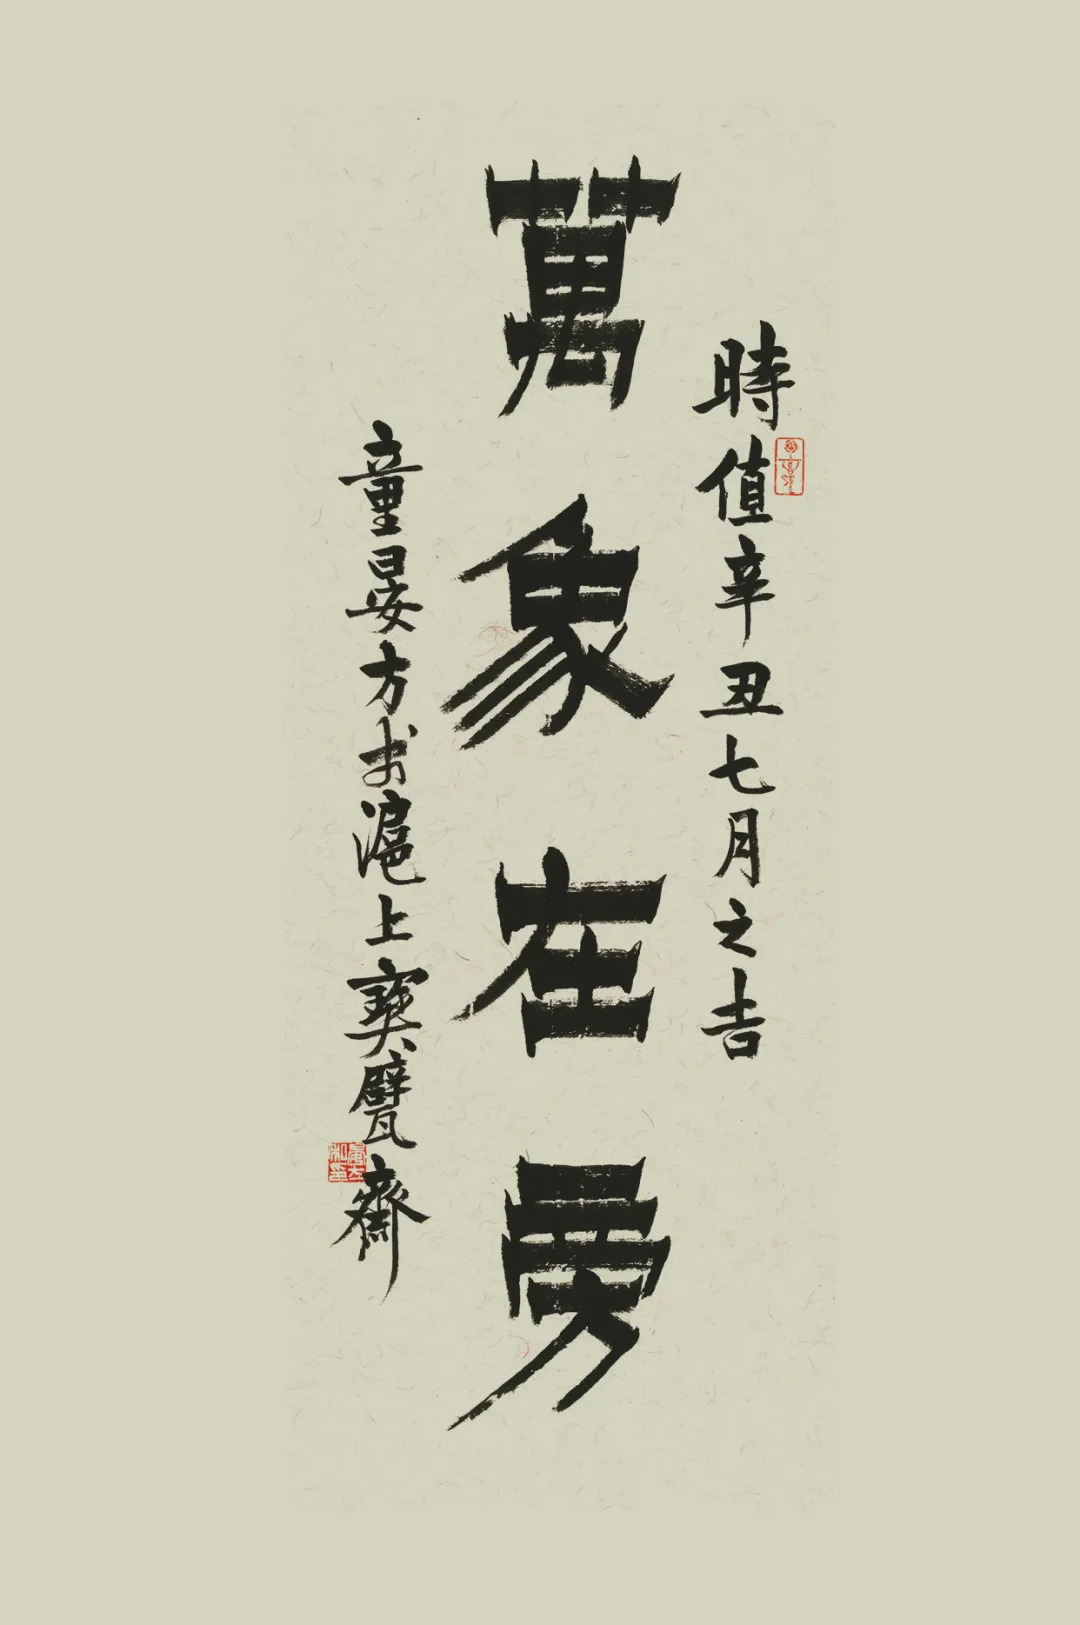 時值辛丑七月之吉
萬象在旁
童晏方书滬上寶甓齋